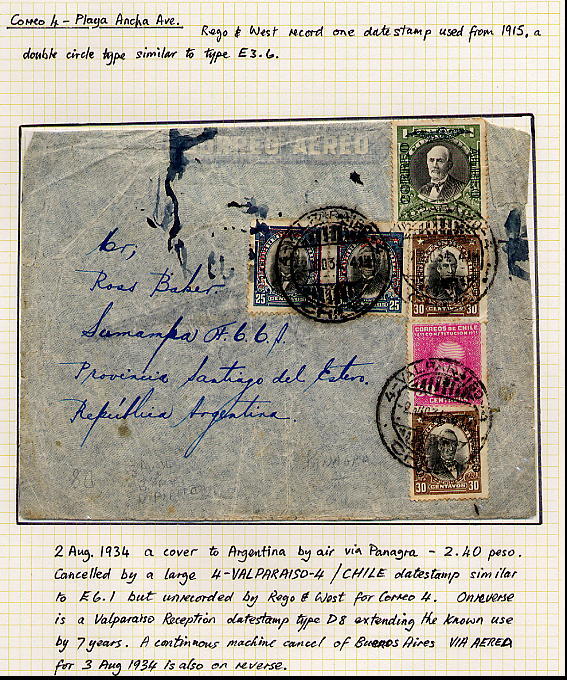 Correo 4 - Playa Ancha Ave.
Rego & West record one datestamp used from 1915, a
double circle type similar to type E3.6.
CORREO AEREO
1
30 CENTAVOS 30
25
25
CORREOS DE CHILE
CENTAVOS
30 CENTAVOS 30
4-VALPARAISO
Mr,
Ross Baker.
Sumampa F.C.C.A.
Provincia Santiago del Estero.
República Argentina.
PANAGRA
2 Aug. 1934 a cover to Argentina by air via Panagra - 2.40 peso.
Cancelled by a large 4-VALPARAISO-4 / CHILE datestamp similar
to E6.1 but unrecorded by Rego & West for Correo 4. On reverse
is a Valparaiso Reception datestamp type D8 extending the known use
by 7 years. A continuous machine cancel of Buenos Aires VIA AEREA
for 3 Aug 1934 is also on reverse.